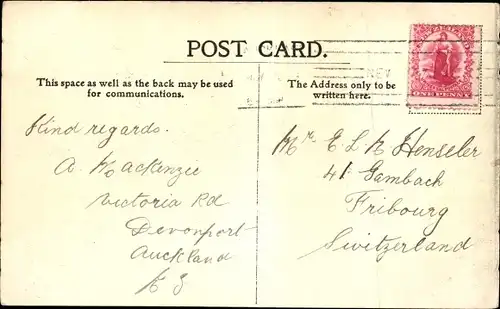 POST CARD.
This space as well as the back may be used
for communications.
The Address only to be
written here.
ONE PENNY
Kind regards.
A. Mackenzie
Victoria Rd
Devonport
Auckland
N Z
Mr. E L N Henseler
41 Gambach
Fribourg
Switzerland